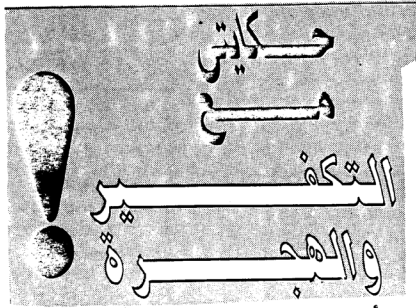 حكايتي
مع
التكفير
والهجرة
!